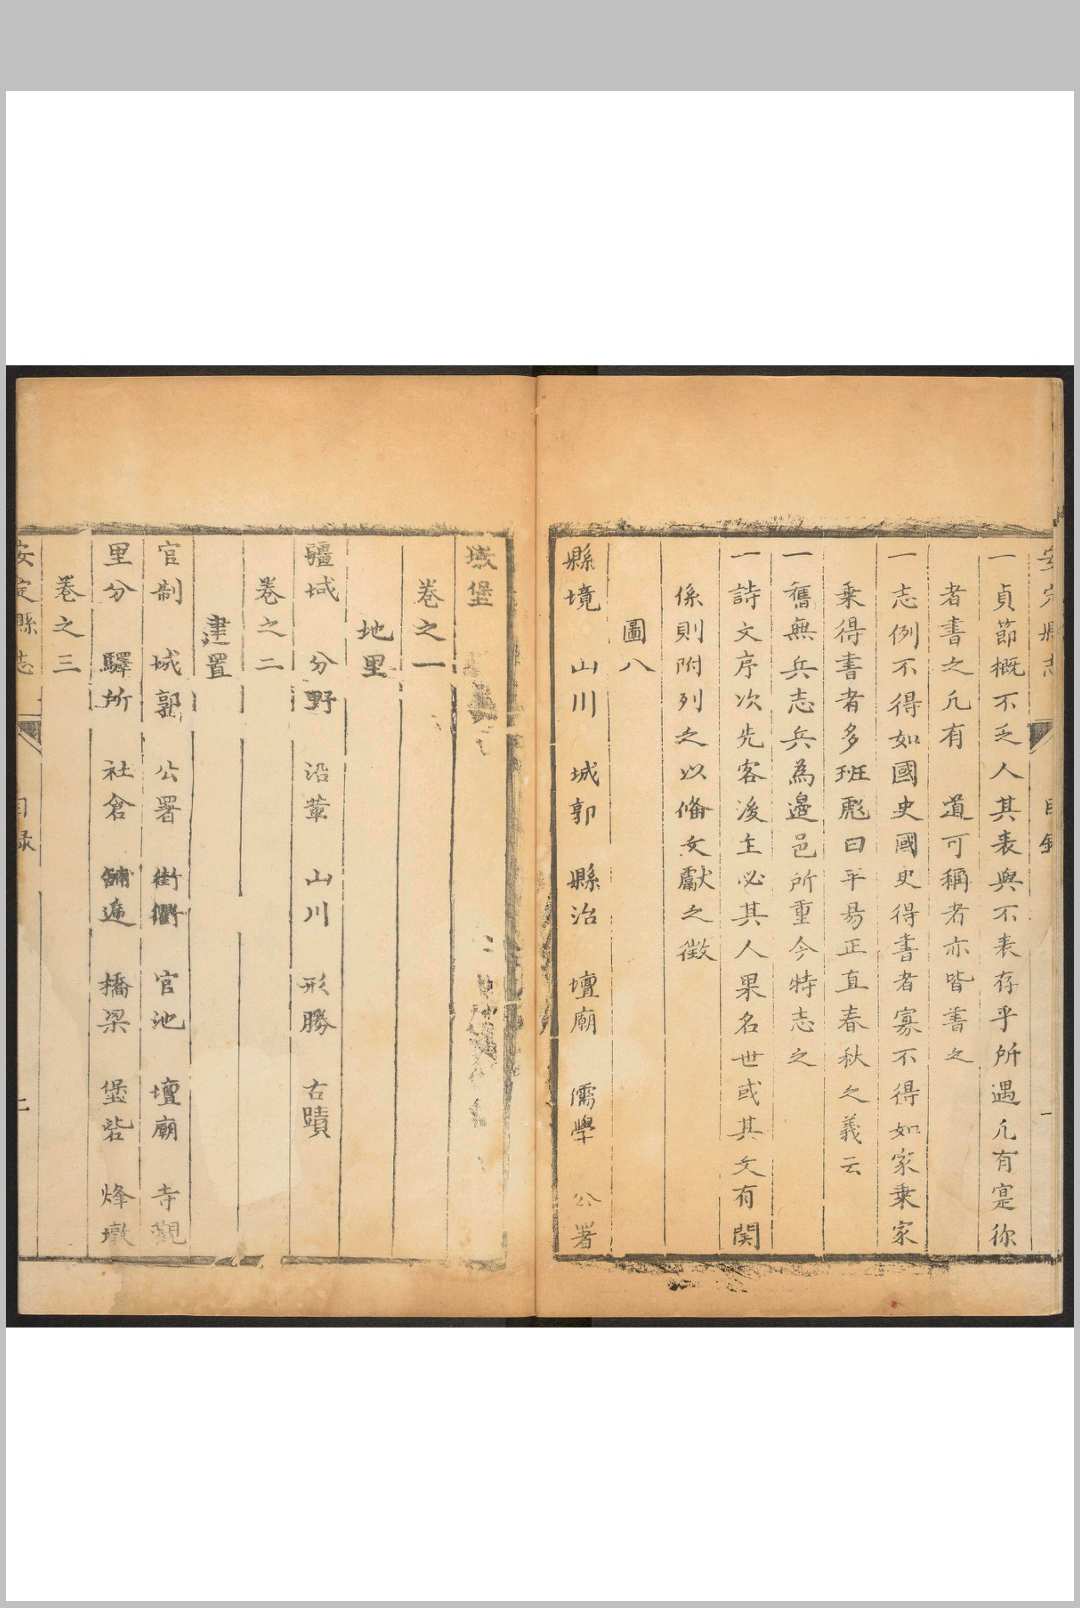 安定縣志 目錄 一
一貞節概不乏人其表與不表存乎所遇凡有寔行
者書之凡有 道可稱者亦皆書之
一志例不得如國史國史得書者寡不得如家乘家
乘得書者多班彪曰平易正直春秋之義云
一舊無兵志兵為邉邑所重今特志之
一詩文序次先客後主必其人果名世或其文有関
係則附列之以俻文獻之徴
圖八
縣境 山川 城郭 縣治 壇廟 儒學 公署
城堡
卷之一
地里
疆域 分野 沿革 山川 形勝 古蹟
卷之二
建置
官制 城郭 公署 街衢 官池 壇廟 寺觀
里分 驛所 社倉 鋪遞 橋梁 堡砦 烽墩
卷之三
安定縣志 目録